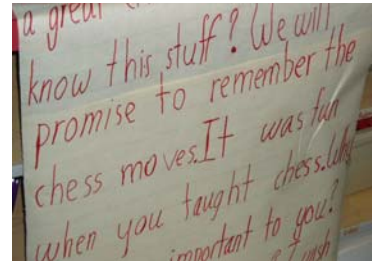 a great
know this stuff? We will
promise to remember the
chess moves. It was fun
when you taught chess. Why
important to you?
I wish